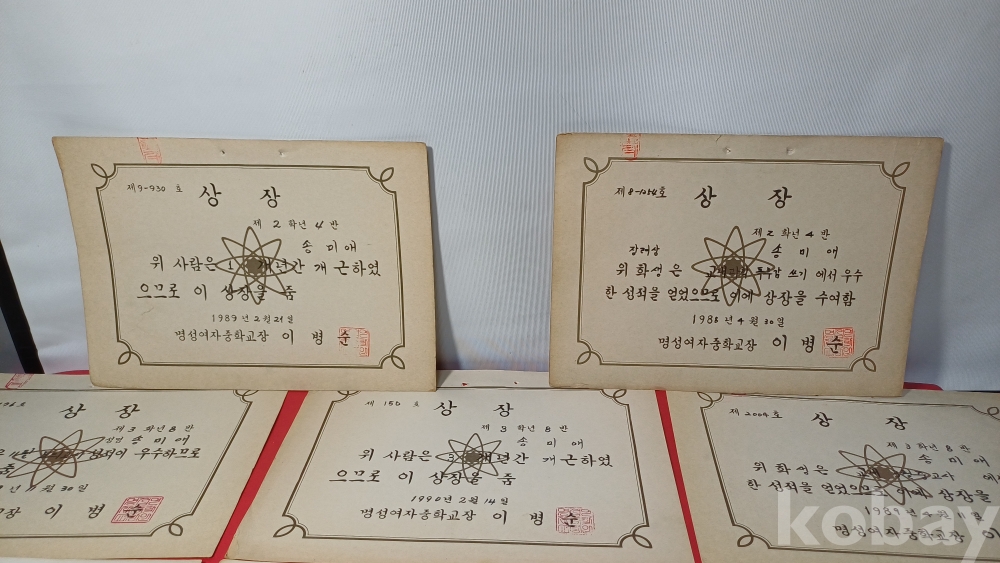 제9-930 호
상 장
제 2 학년 4 반
송 미 애
위 사람은 1 개년간 개 근하였
으므로 이 상장을 줌
1989 년 2 월 21 일
명성여자중학교장 이 병 순
제8-1054호
상 장
제 2 학년 4 반
장려상 송 미 애
위 학생 은 쓰기 에서 우수
한 성적을 얻었으므로 이에 상장을 수여함
1988 년 4 월 30 일
명성여자중학교장 이 병 순
상 장
제 3 학년 8 반
성명 송 미 애
우수하므로
월 30 일
장 이 병 순
제 150 호
상 장
제 3 학년 8 반
송 미 애
위 사람은 3 개년간 개 근하였
으므로 이 상장을 줌
1990 년 2 월 14 일
명성여자중학교장 이 병 순
제 2004 호
상 장
제 3 학년 8 반
송 미 애
위 학생은
한 성적을 얻었으므로 이에 상장을
1989 년 4 월
명성여자중학교장 이
kobay